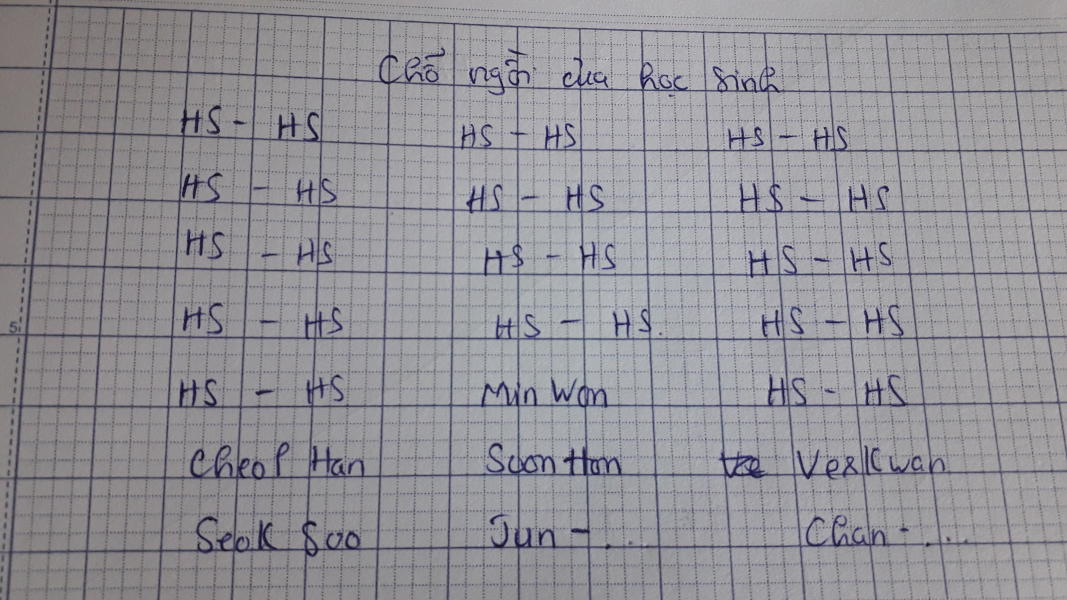 Chỗ ngồi của học sinh
HS - HS HS - HS HS - HS
HS - HS HS - HS HS - HS
HS - HS HS - HS HS - HS
HS - HS HS - HS. HS - HS
HS - HS Min Won HS - HS
Cheol Han Soon Hon Ver Kwan
Seok Soo Jun - ... Chan - ....
5